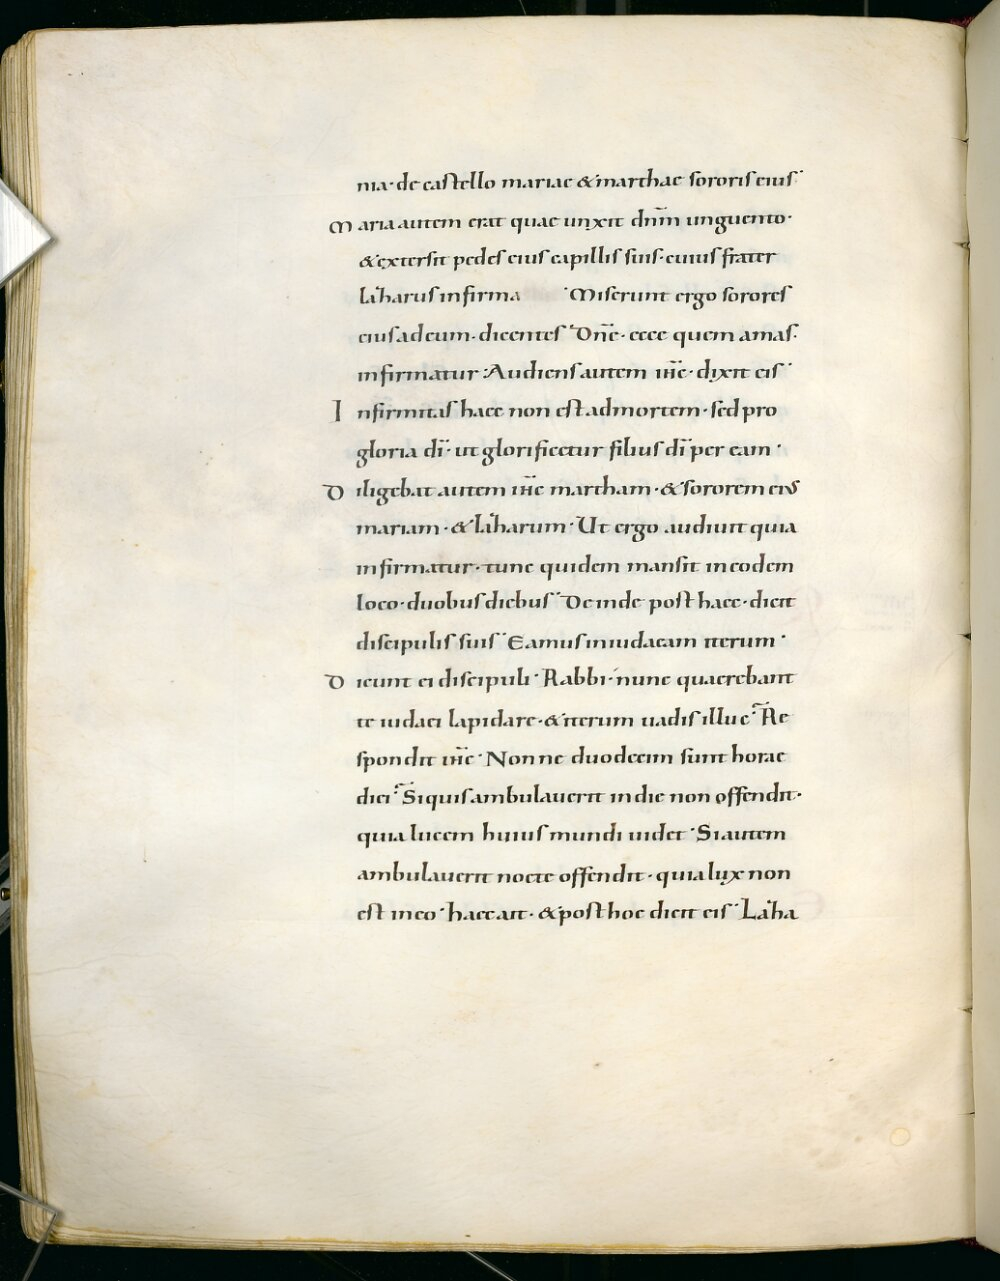 nia· de castello mariae & marthae sororis eius·
Maria autem erat quae unxit dn̄m unguento·
& extersit pedes eius capillis suis· cuius frater
lazharus infirma ·Miserunt ergo sorores
eius ad eum· dicentes· Dn̄e· ecce quem amas·
infirmatur· Audiens autem ih̄c· dixit eis·
Infirmitas haec non est ad mortem· sed pro
gloria dī· ut glorificetur filius dī per eam·
Diligebat autem ih̄c martham· & sororem eius
mariam· & lazharum· Ut ergo audiuit quia
infirmatur· tunc quidem mansit in eodem
loco· duobus diebus· Deinde post haec· dicit
discipulis suis· Eamus in iudaeam iterum·
Dicunt ei discipuli· Rabbi· nunc quaerebant
te iudaei lapidare· & iterum uadis illuc· Re
spondit ih̄c· Nonne duodecim sunt horae
diei· Si quis ambulauerit in die non offendit·
quia lucem huius mundi uidet· Si autem
ambulauerit nocte offendit· quia lux non
est in eo· haec ait· & post hoc dicit eis· Lazha